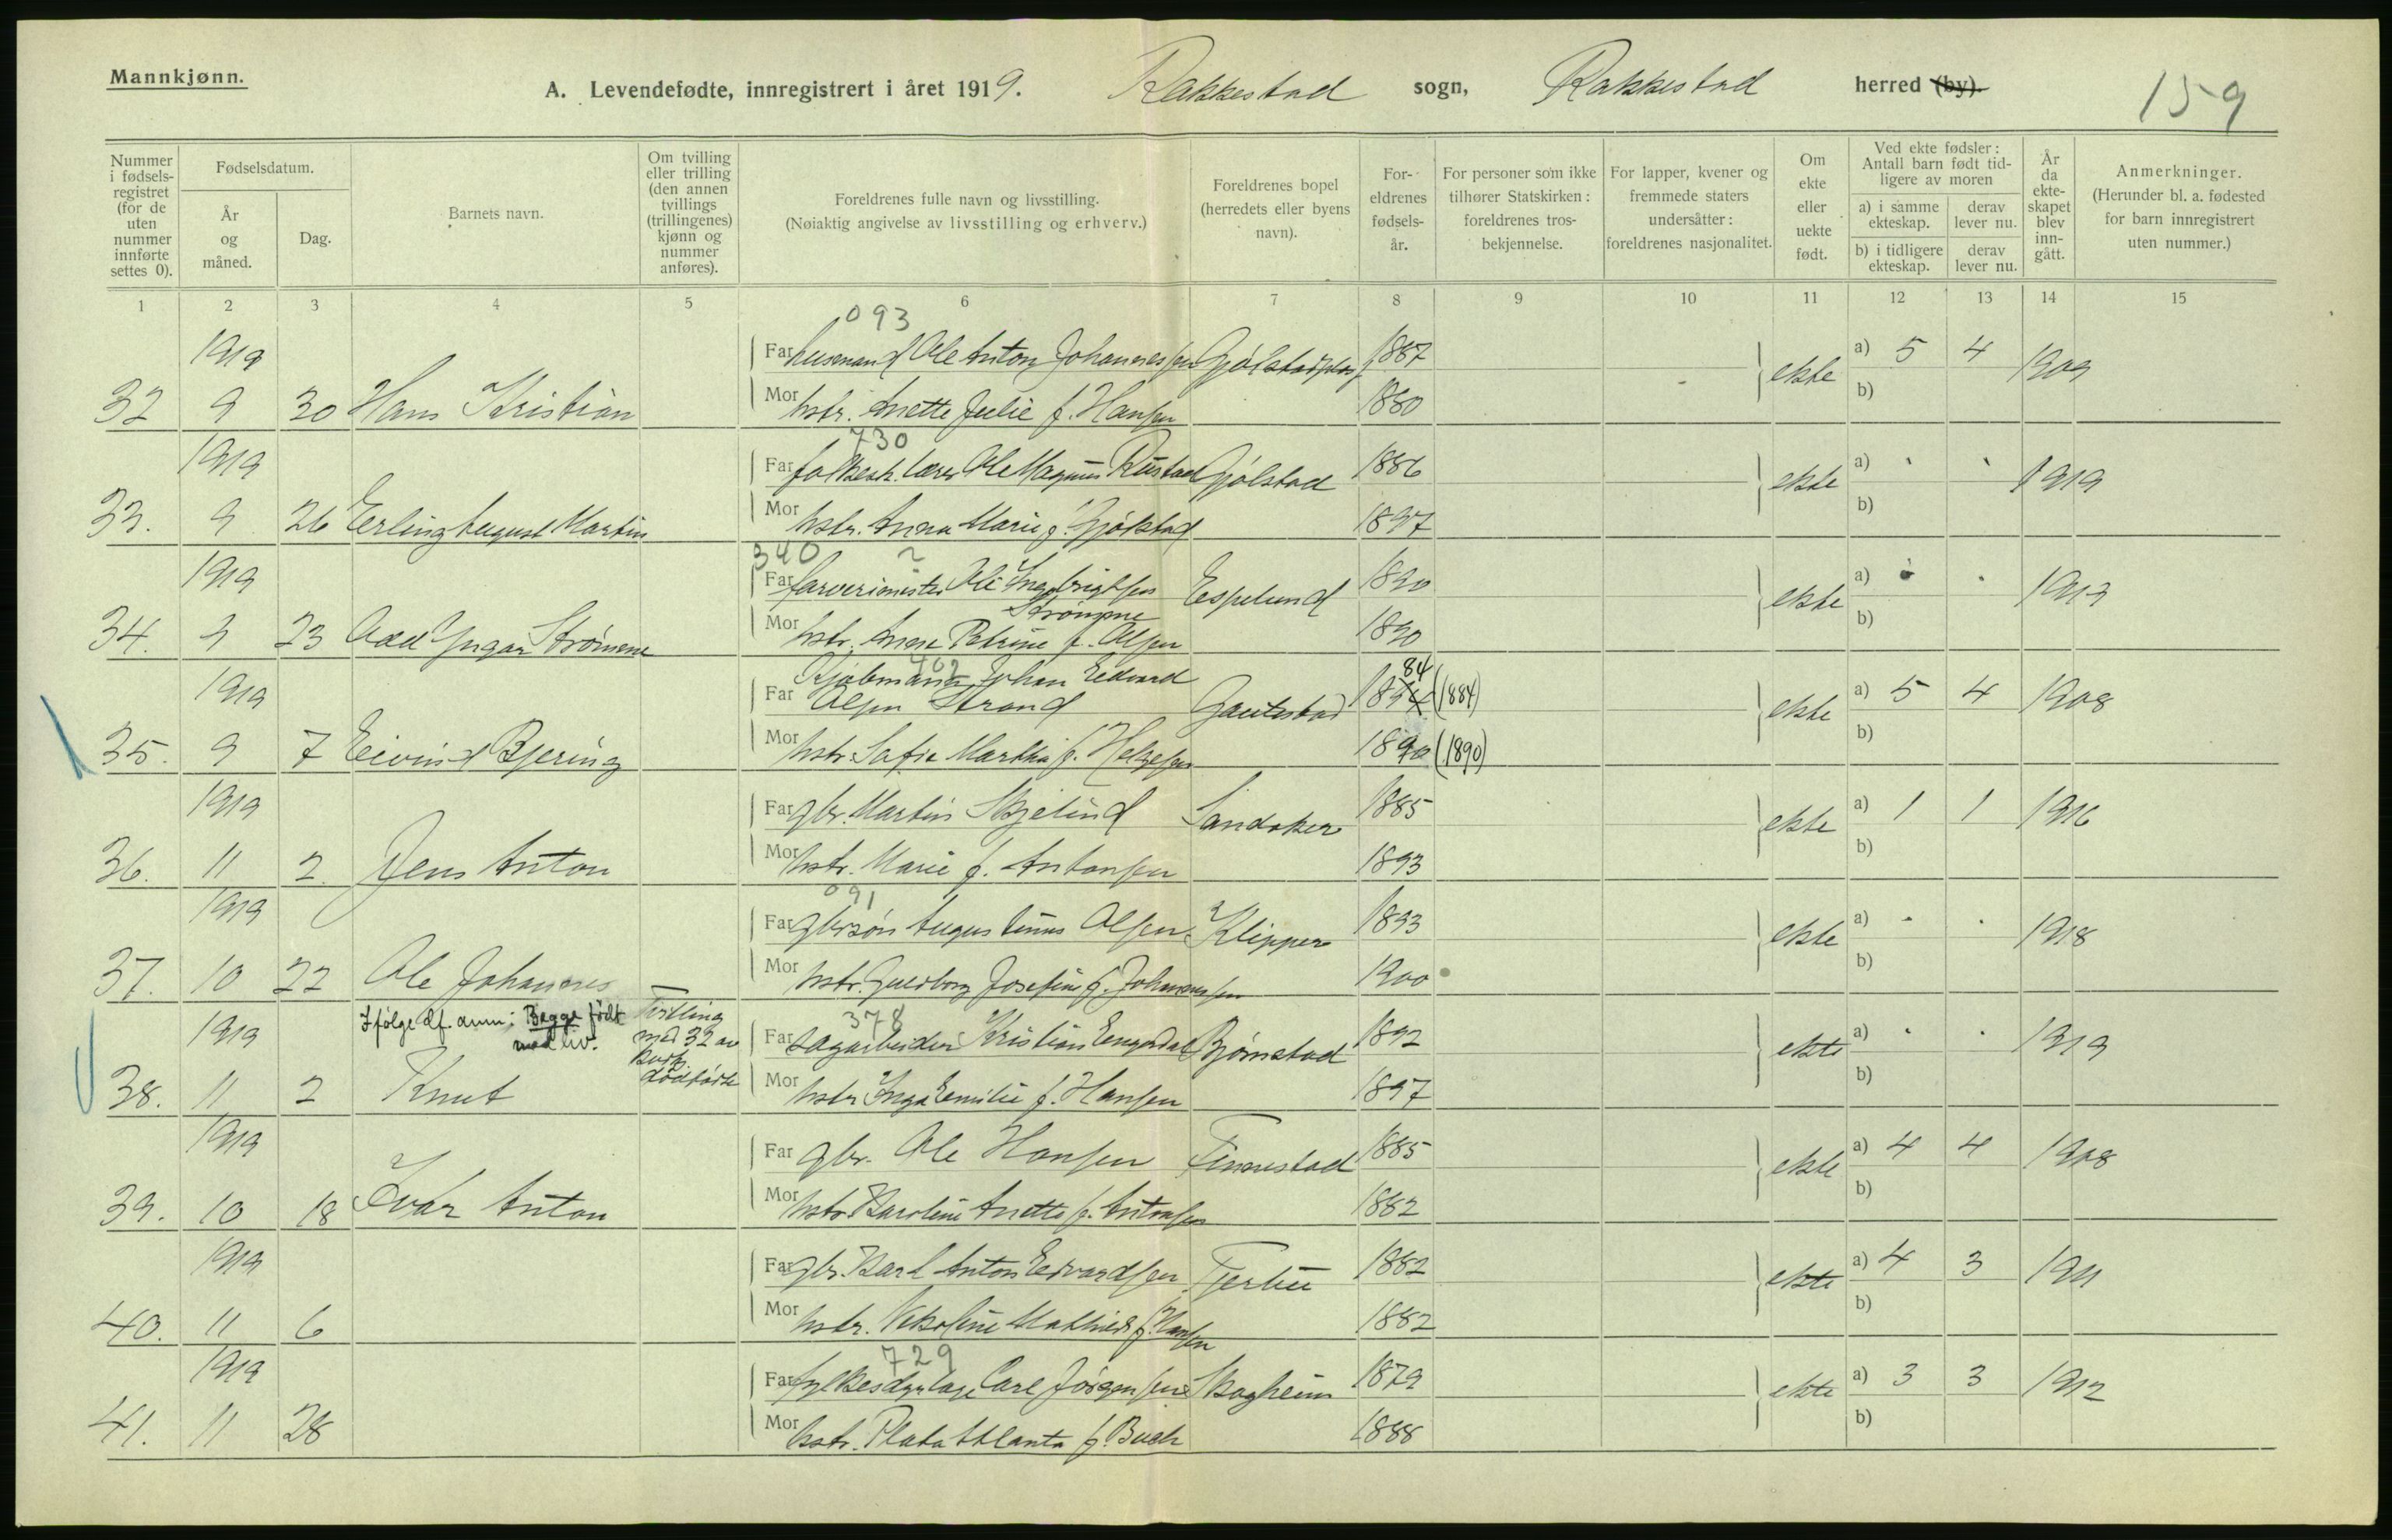 Mannkjønn.
A. Levendefødte, innregistrert i året 1919. Rakkestad sogn, Rakkestad herred (by).
159
Nummer i fødselsregistret (for de uten nummer innførte settes 0).
Fødselsdatum.
År og måned.
Dag.
Barnets navn.
Om tvilling eller trilling (den annen tvillings (trillingenes) kjønn og nummer anføres).
Foreldrenes fulle navn og livsstilling.
(Nøiaktig angivelse av livsstilling og erhverv.)
Foreldrenes bopel (herredets eller byens navn).
For-eldrenes fødsels-år.
For personer som ikke tilhører Statskirken: foreldrenes tros-bekjennelse.
For lapper, kvener og fremmede staters undersåtter: foreldrenes nasjonalitet.
Om ekte eller uekte født.
Ved ekte fødsler: Antall barn født tid-ligere av moren
a) i samme ekteskap.
derav lever nu.
b) i tidligere ekteskap.
derav lever nu.
År da ekte-skapet blev inn-gått.
Anmerkninger.
(Herunder bl. a. fødested for barn innregistrert uten nummer.)
1 2 3 4 5 6 7 8 9 10 11 12 13 14 15
093
1919 Far husmand Ole Anton Johannessen Gjølstadplas 1887 ekte a) 5 4 1909
32 9 30 Hans Kristian Mor hstr. Anette Julie f. Hansen 1880 b)
730
1919 Far folkesk. lærer Ole Magnus Rustad Gjølstad 1886 ekte a) 1919
33. 9 26 Erling August Martin Mor hstr. Anna Marie f. Gjølstad 1897 b)
340
1919 Far farverimester Ole Ingebrigtsen Espelund 1890 ekte a) 1913
Strømme
34. 9 23 Odd Yngar Strømme Mor hstr. Anna Petrine f. Olsen 1890 b)
402
Kjøbmand Johan Edvard
84
1919 Far Olsen Strand Gautestad 1894 (1884) ekte a) 5 4 1908
35. 9 7 Eivind Bjering Mor hstr. Sofie Marthia f. Helgesen 1890 (1890) b)
1919 Far gbr. Martin Skjelind Sandaker 1885 ekte a) 1 1 1916
36. 11 2 Jens Anton Mor hstr. Marie f. Antonsen 1893 b)
091
1919 Far gbrsøn Augustinus Olsen Klipper 1893 ekte a) 1918
37. 10 22 Ole Johannes Mor hstr. Gudborg Josefine f. Johannessen 1900 b)
Ifølge df. anm: Begge født med liv.
Tvilling med 32 av kvik. dødfødte
378
1919 Far sagarbeider Kristian Engerdal Bjørnstad 1892 ekte a) 1919
38. 11 2 Knut Mor hstr Inga Emilie f. Hansen 1897 b)
1919 Far gbr. Ole Hansen Finnestad 1885 ekte a) 4 4 1908
39. 10 18 Ivar Anton Mor hstr. Karoline Anette f. Antonsen 1882 b)
1919 Far gbr. Karl Anton Edvardsen Tjerbu 1882 ekte a) 4 3 1911
40. 11 6 Mor hstr. Nikoline Mathilde f. Hansen 1882 b)
729
1919 Far fylkesdyrlæge Carl Jørgensen Skogheim 1879 ekte a) 3 3 1912
41. 11 28 Mor hstr. Plata Atlanta f. Buch 1888 b)